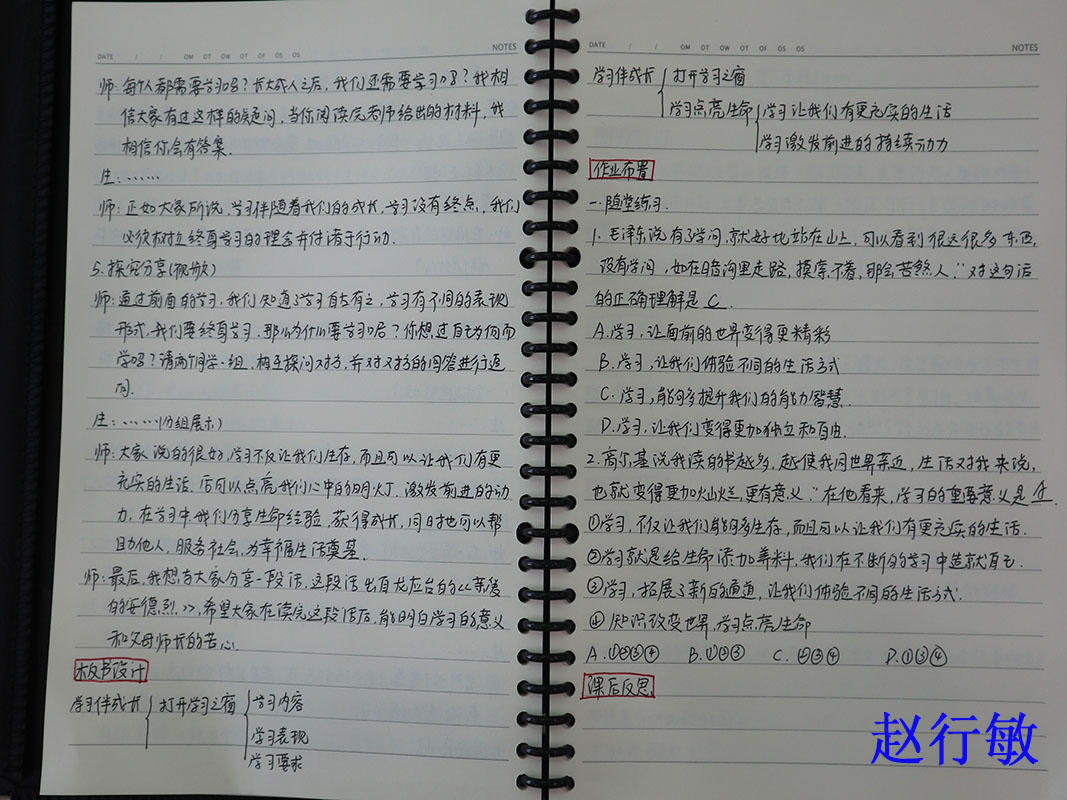 DATE / / OM OT OW OT OF OS OS NOTES
师:每个人都需要学习吗?长大成人之后,我们还需要学习吗?我相
信大家有过这样的疑问,当你阅读完老师给出的材料,我
相信你会有答案.
生:……
师:正如大家所说,学习伴随着我们的成长,学习没有终点,我们
必须树立终身学习的理念并付诸于行动.
5.探究分享(视频)
师:通过前面的学习,我们知道了学习自古有之,学习有不同的表现
形式,我们要终身学习.那么为什么要学习呢?你想过自己为何而
学吗?请两个同学一组,相互探问对方,并对对方的回答进行追
问.
生:……(分组展示)
师:大家说的很好,学习不仅让我们生存,而且可以让我们有更
充实的生活.还可以点亮我们心中的明灯.激发前进的动
力,在学习中,我们分享生命经验,获得成长,同时也可以帮
助他人,服务社会,为幸福生活奠基.
师:最后,我想与大家分享一段话,这段话出自龙应台的《亲爱
的安德烈》,希望大家在读完这段话后,能明白学习的意义
和父母师长的苦心.
板书设计
学习伴成长 打开学习之窗 学习内容
学习表现
学习要求
DATE / / OM OT OW OT OF OS OS NOTES
学习伴成长 打开学习之窗
学习点亮生命 学习让我们有更充实的生活
学习激发前进的持续动力
作业布置
一.随堂练习.
1.毛泽东说有了学问,就好比站在山上,可以看到很远很多东西,
没有学问,如在暗沟里走路,摸索不着,那会苦煞人."对这句话
的正确理解是 C.
A.学习,让面前的世界变得更精彩
B.学习,让我们体验不同的生活方式
C.学习,能够多提升我们的能力智慧.
D.学习,让我们变得更加独立和自由.
2.高尔基说我读的书越多,越使我同世界亲近,生活对我来说,
也就变得更加灿烂,更有意义."在他看来,学习的重要意义是
①学习,不仅让我们能够多生存,而且可以让我们有更充实的生活.
②学习就是给生命添加养料,我们在不断的学习中造就自己.
③学习,拓展了新的通道,让我们体验不同的生活方式.
④知识改变世界,学习点亮生命
A.①②③④ B.①②③ C.②③④ D.①③④
课后反思
赵行敏